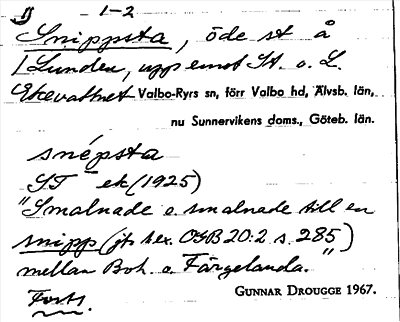 1) 1-2
Snippsta, öde st å
/ Lunden, upp emot St. o. L.
Ekevattnet Valbo-Ryrs sn, förr Valbo hd, Älvsb. län,
nu Sunnervikens doms., Göteb. län.
snépsta
ST ek (1925)
"Smalnade o. smalnade till en
snipp (jfr hex. OGB 20:2 s. 285)
mellan Boh. o. Färgelanda."
Forts.
GUNNAR DROUGGE 1967.